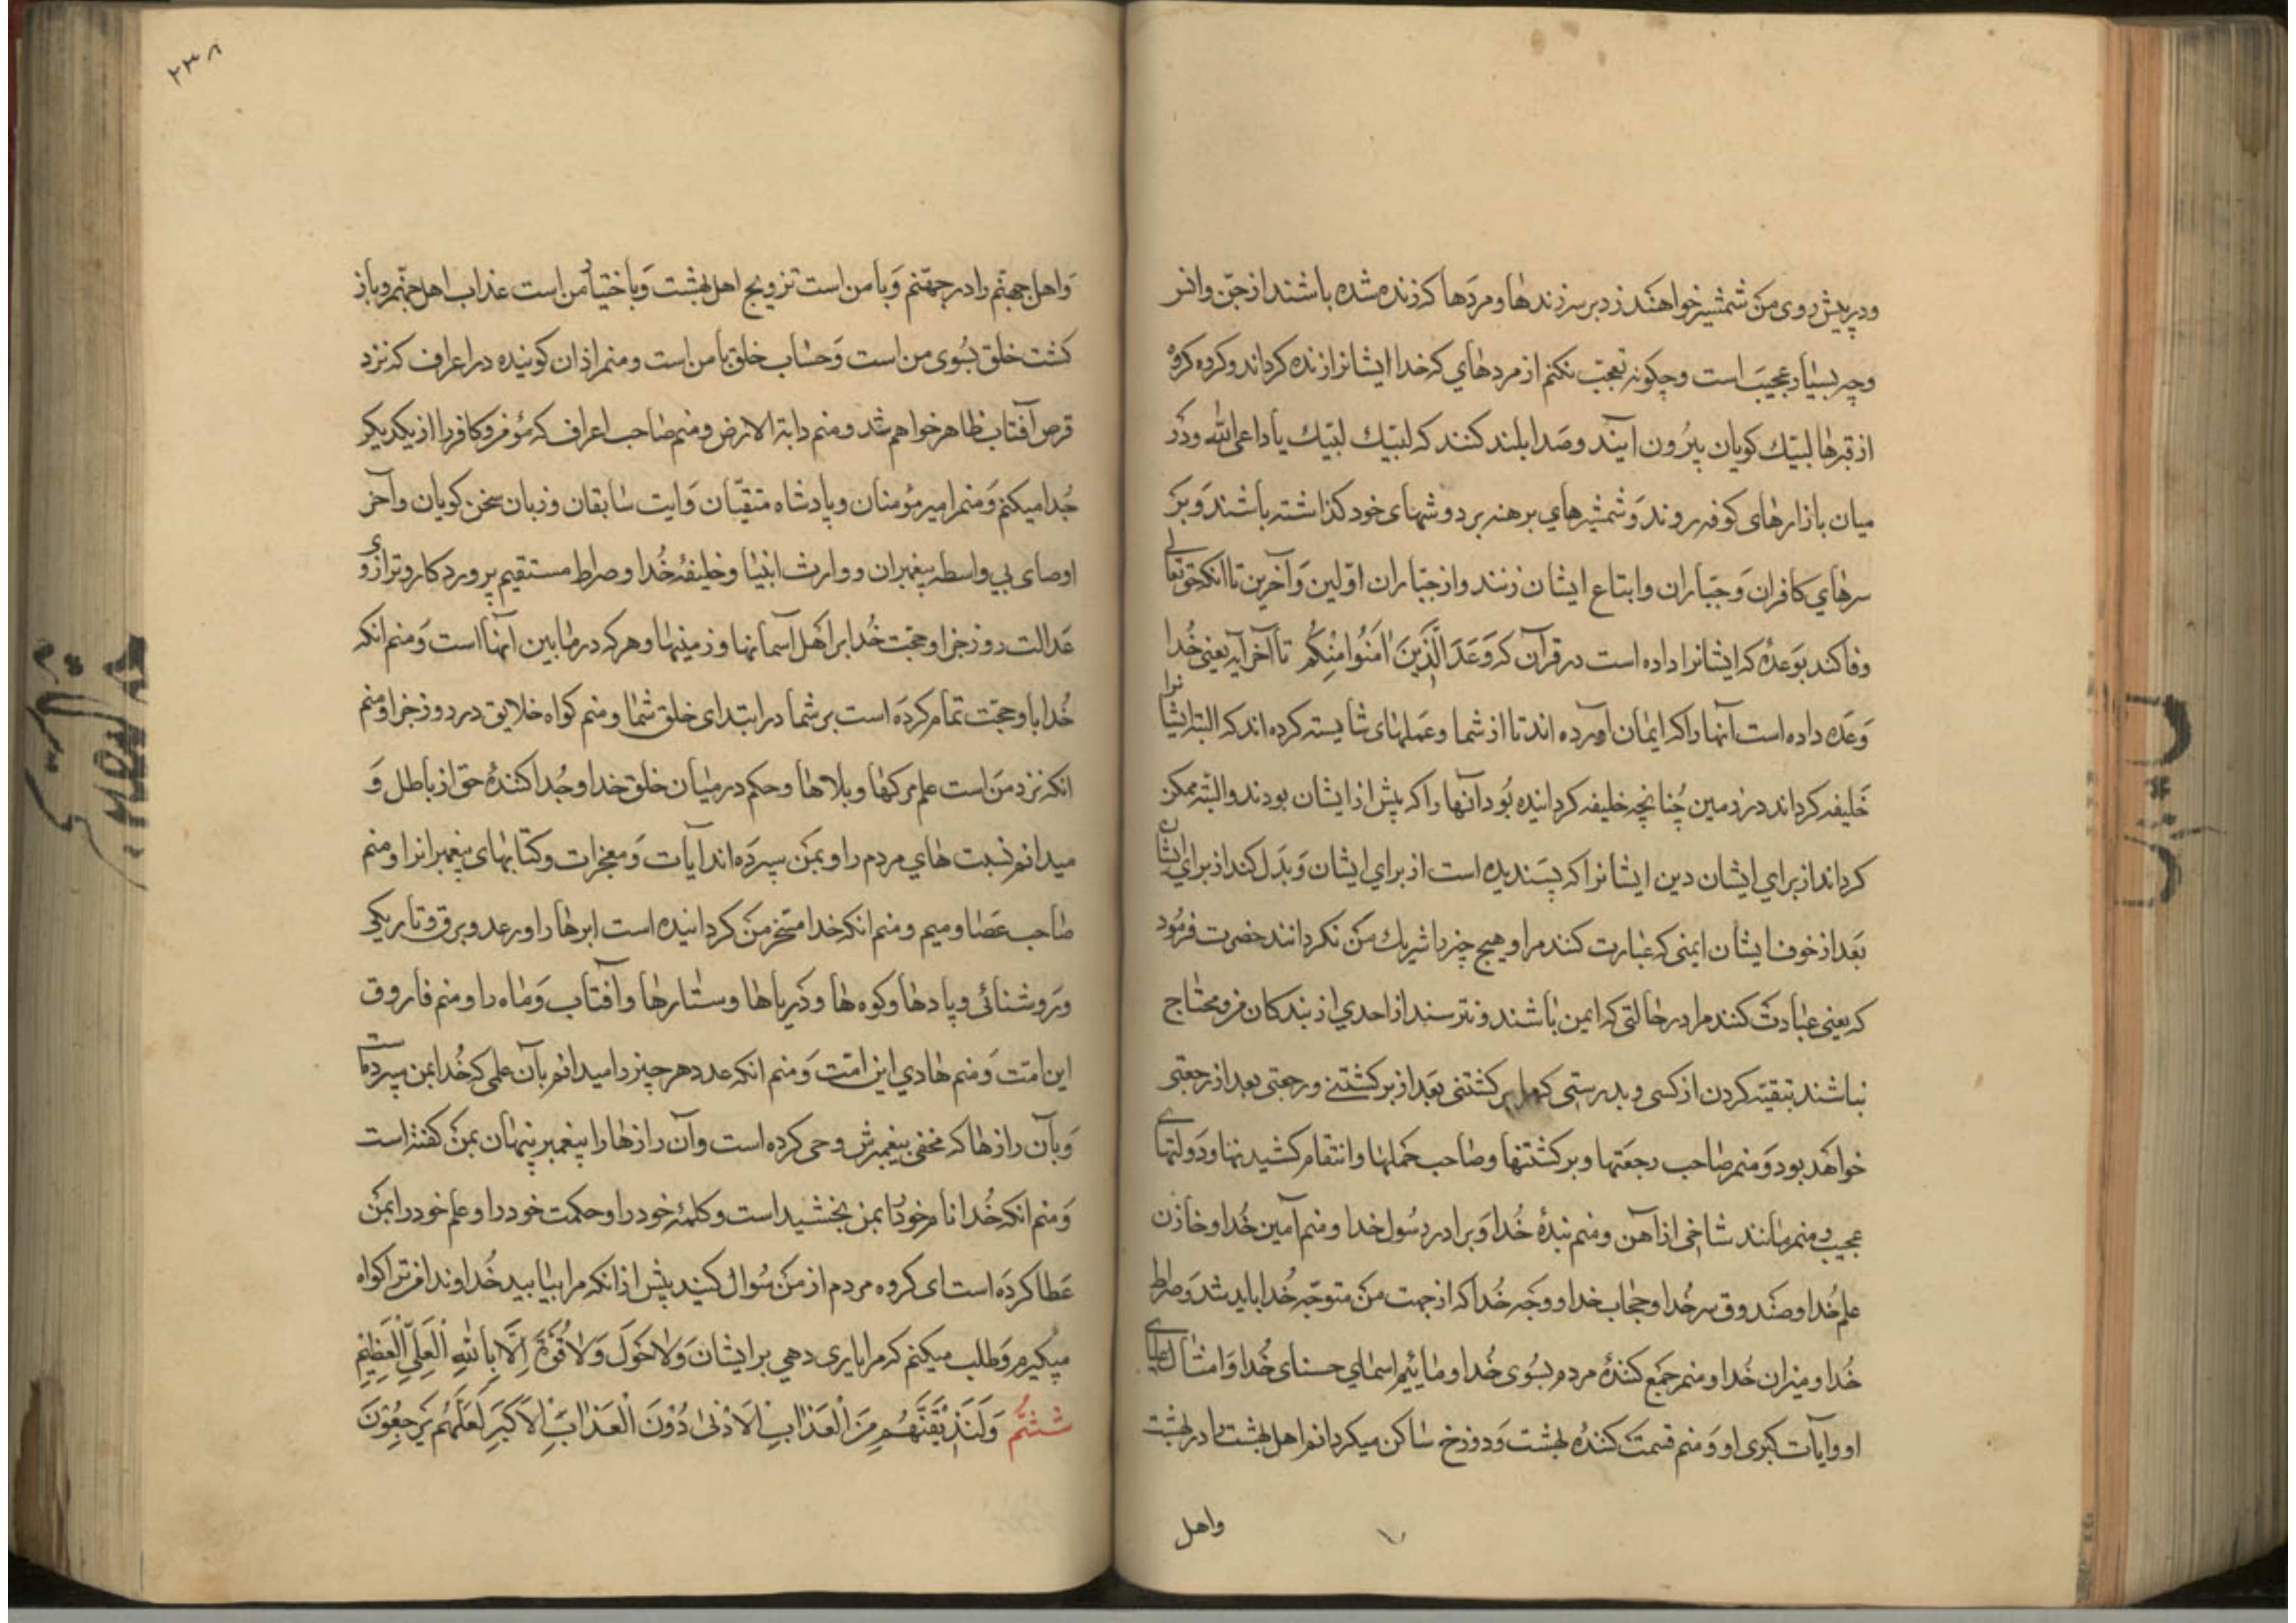 ودر پیش روی من شمشیر خواهند زد بر سر زندها ومردها که زنده شده باشند از جن وانس
وچه بسیار عجیب است وچکونه تعجب نکنم از مردهای که خدا ایشانرا زنده کرداند وکروه کروه
از قبرها لبیک کویان بیرون آیند وصدا بلند کنند که لبیک لبیک یا داعی الله ودر
میان بازارهای کوفه روند وشمشیرهای برهنه بر دوشهای خود کذاشته باشند وبر
سرهای کافران وجباران واتباع ایشان زنند واز جباران اولین وآخرین تا انکه حق تعالی
وفا کند بوعدهٔ که ایشانرا داده است در قرآن که وَعَدَ الَّذِینَ اٰمَنُوا مِنْکُم تا آخر آیه یعنی خدا
وعده داده است آنها را که ایمان آورده اند تا از شما وعملهای شایسته کرده اند که البته ایشانرا
خلیفه کرداند در زمین چنانچه خلیفه کردانیده بود آنها را که پیش از ایشان بودند والبته ممکن
کرداند از برای ایشان دین ایشانرا که پسندیده است از برای ایشان وبدل کند از برای ایشان
بعد از خوف ایشان ایمنی که عبارت کنند مرا وهیچ چیز را شریک من نکردانند حضرت فرمود
که یعنی عبادت کنند مرا در حالتی که ایمن باشند ونترسند از احدی از بندکان من ومحتاج
نباشند بتقیه کردن از کسی وبدرستی که مرا برکشتنی بعد از برکشتنی ورجعتی بعد از رجعتی
خواهد بود ومنم صاحب رجعتها وبرکشتنها وصاحب حملها وانتقام کشیدنها ودولتهای
عجیب ومنم مانند شاخی از آهن ومنم بندهٔ خدا وبرادر رسول خدا ومنم امین خدا وخازن
علم خدا وصندوق سر خدا وحجاب خدا ووجه خدا که از جهت من متوجه خدا باید شد وصراط
خدا ومیزان خدا ومنم جمع کنندهٔ مردم بسوی خدا ومائیم اسمای حسنای خدا وامثال علیای
او وآیات کبرای او ومنم قسمت کنندهٔ بهشت ودوزخ ساکن میکردانم اهل بهشت را در بهشت
واهل
۲۳۸
واهل جهنم را در جهنم وبا من است تزویج اهل بهشت وباختیار من است عذاب اهل جهنم وباز
کشت خلق بسوی من است وحساب خلق با من است ومنم اذان کوینده در اعراف که نزد
قرص آفتاب ظاهر خواهم شد ومنم دابة الارض ومنم صاحب اعراف که مؤمن وکافر را از یکدیکر
جدا میکنم ومنم امیر مؤمنان وپادشاه متقیان وآیت سابقان وزبان سخن کویان وآخر
اوصیای بی واسطه پیغمبران ووارث انبیا وخلیفهٔ خدا وصراط مستقیم پروردکار وترازوی
عدالت روز جزا وحجت خدا بر اهل آسمانها وزمینها وهر که در مابین آنها است ومنم انکه
خدا باو حجت تمام کرده است بر شما در ابتدای خلق شما ومنم کواه خلایق در روز جزا ومنم
انکه نزد من است علم مرکها وبلاها وحکم در میان خلق خدا وجدا کنندهٔ حق از باطل و
میدانم نسبت های مردم را وبمن سپرده اند آیات ومعجزات وکتابهای پیغمبرانرا ومنم
صاحب عصا ومیسم ومنم انکه خدا مسخر من کردانیده است ابرها را ورعد وبرق وتاریکی
وروشنائی وبادها وکوه ها ودریاها وستارها وآفتاب وماه را ومنم فاروق
این امت ومنم هادی این امت ومنم انکه عدد هر چیز را میدانم بآن علمی که خدا بمن سپرده است
وبآن رازها که مخفی به پیغمبرش وحی کرده است وآن رازها را پیغمبر پنهان بمن کفته است
ومنم انکه خدا نام خود را بمن بخشیده است وکلمهٔ خود را وحکمت خود را وعلم خود را بمن
عطا کرده است ای کروه مردم از من سوال کنید پیش از انکه مرا نیابید خداوندا من ترا کواه
میکیرم وطلب میکنم که مرا یاری دهی بر ایشان وَلاٰ حَوْلَ وَلاٰ قُوَّةَ اِلَّا بِاللهِ الْعَلِیِّ الْعَظِیْمِ
ششم وَلَنُذِیْقَنَّهُم مِنَ الْعَذٰابِ الْاَدْنٰی دُوْنَ الْعَذٰابِ الْاَکْبَرِ لَعَلَّهُم یَرْجِعُوْنَ